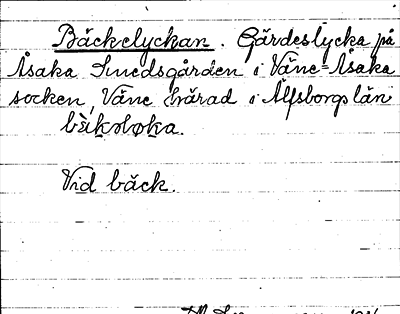 Bäckelyckan. Gärdeslycka på
Åsaka Smedsgården i Väne-Åsaka
socken, Väne härad i Älfsborgs län
Vid bäck.